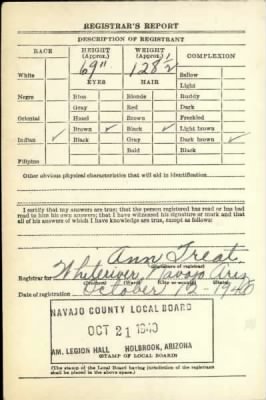 REGISTRAR'S REPORT
DESCRIPTION OF REGISTRANT
RACE HEIGHT (Approx.) WEIGHT (Approx.) COMPLEXION
69" 128½
White Sallow
EYES HAIR Light
Negro Blue Blonde Ruddy
Gray Red Dark
Oriental Hazel Brown Freckled
Indian ✓ Brown ✓ Black ✓ Light brown
Black Gray Dark brown ✓
Bald Black
Filipino
Other obvious physical characteristics that will aid in identification
I certify that my answers are true; that the person registered has read or has had
read to him his own answers; that I have witnessed his signature or mark and that
all of his answers of which I have knowledge are true, except as follows:
Ann Treat
(Signature of registrar)
Registrar for Whiteriver, Navajo Ariz
Date of registration October 16-1940
NAVAJO COUNTY LOCAL BOARD
OCT 21 1940
AM. LEGION HALL HOLBROOK, ARIZONA
(STAMP OF LOCAL BOARD)
(The stamp of the Local Board having jurisdiction of the registrant
shall be placed in the above space.)